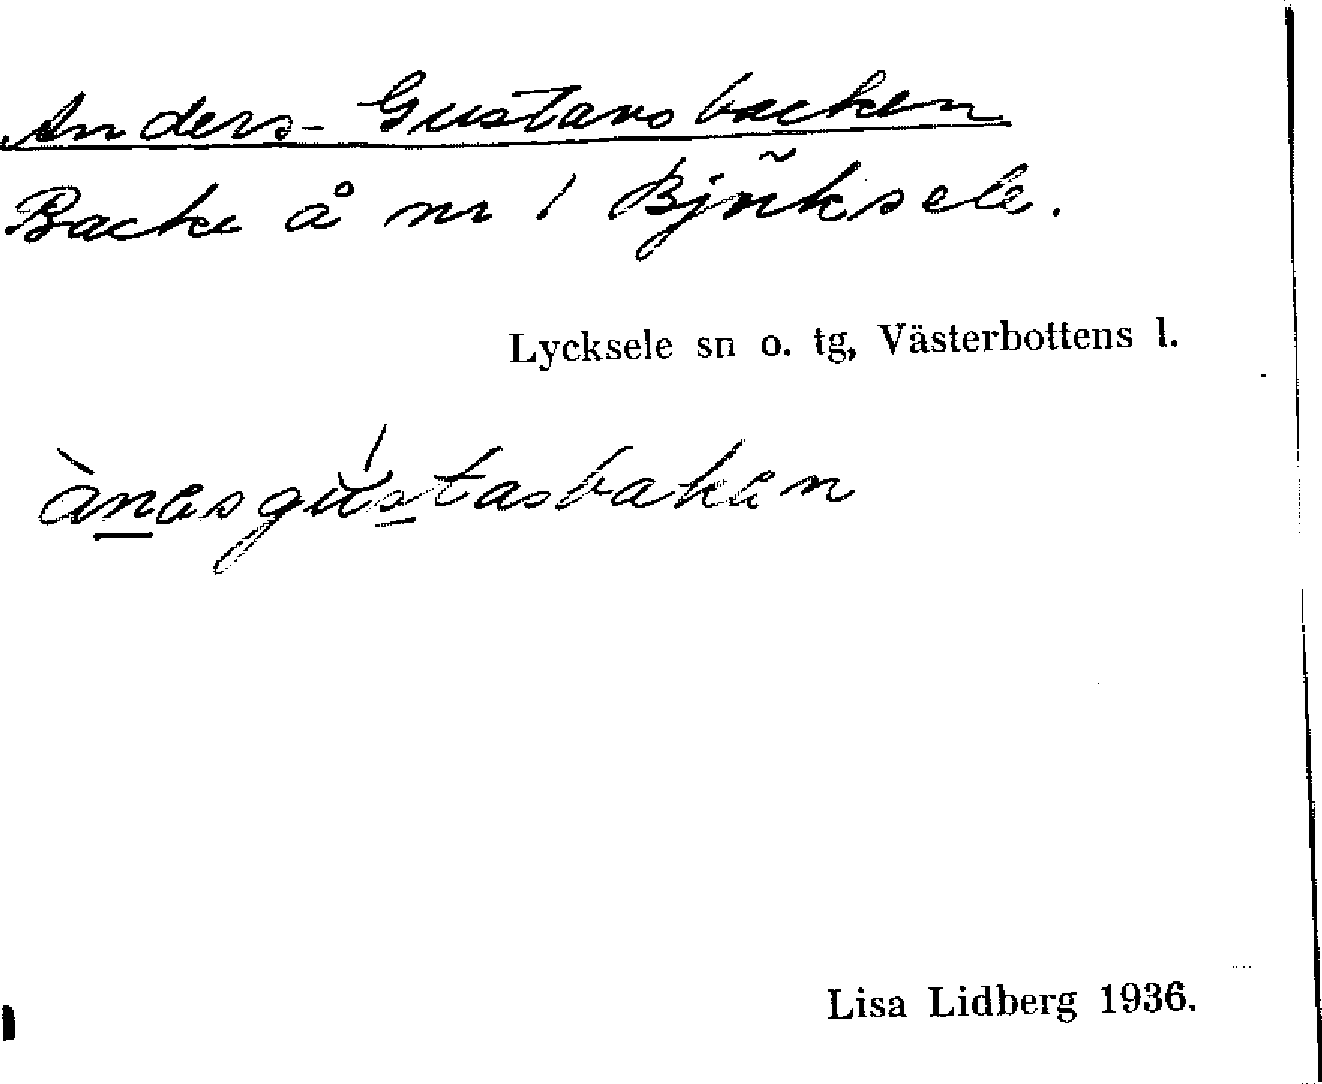 Anders-Gustavsbacken
Backe å nr 1 Björksele.
Lycksele sn o. tg, Västerbottens l.
ànasgústasbakan
Lisa Lidberg 1936.